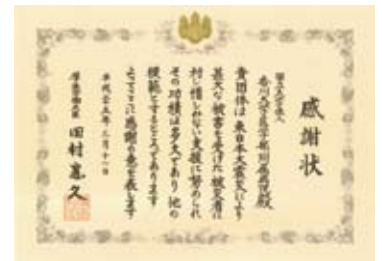 感謝状
国立大学法人
香川大学医学部附属病院殿
貴団体は東日本大震災により
甚大な被害を受けた被災者に
対し惜しみない支援に努められ
その功績は多大であり他の
模範とするところであります
よってここに感謝の意を表します
平成二十五年三月十一日
厚生労働大臣 田村憲久